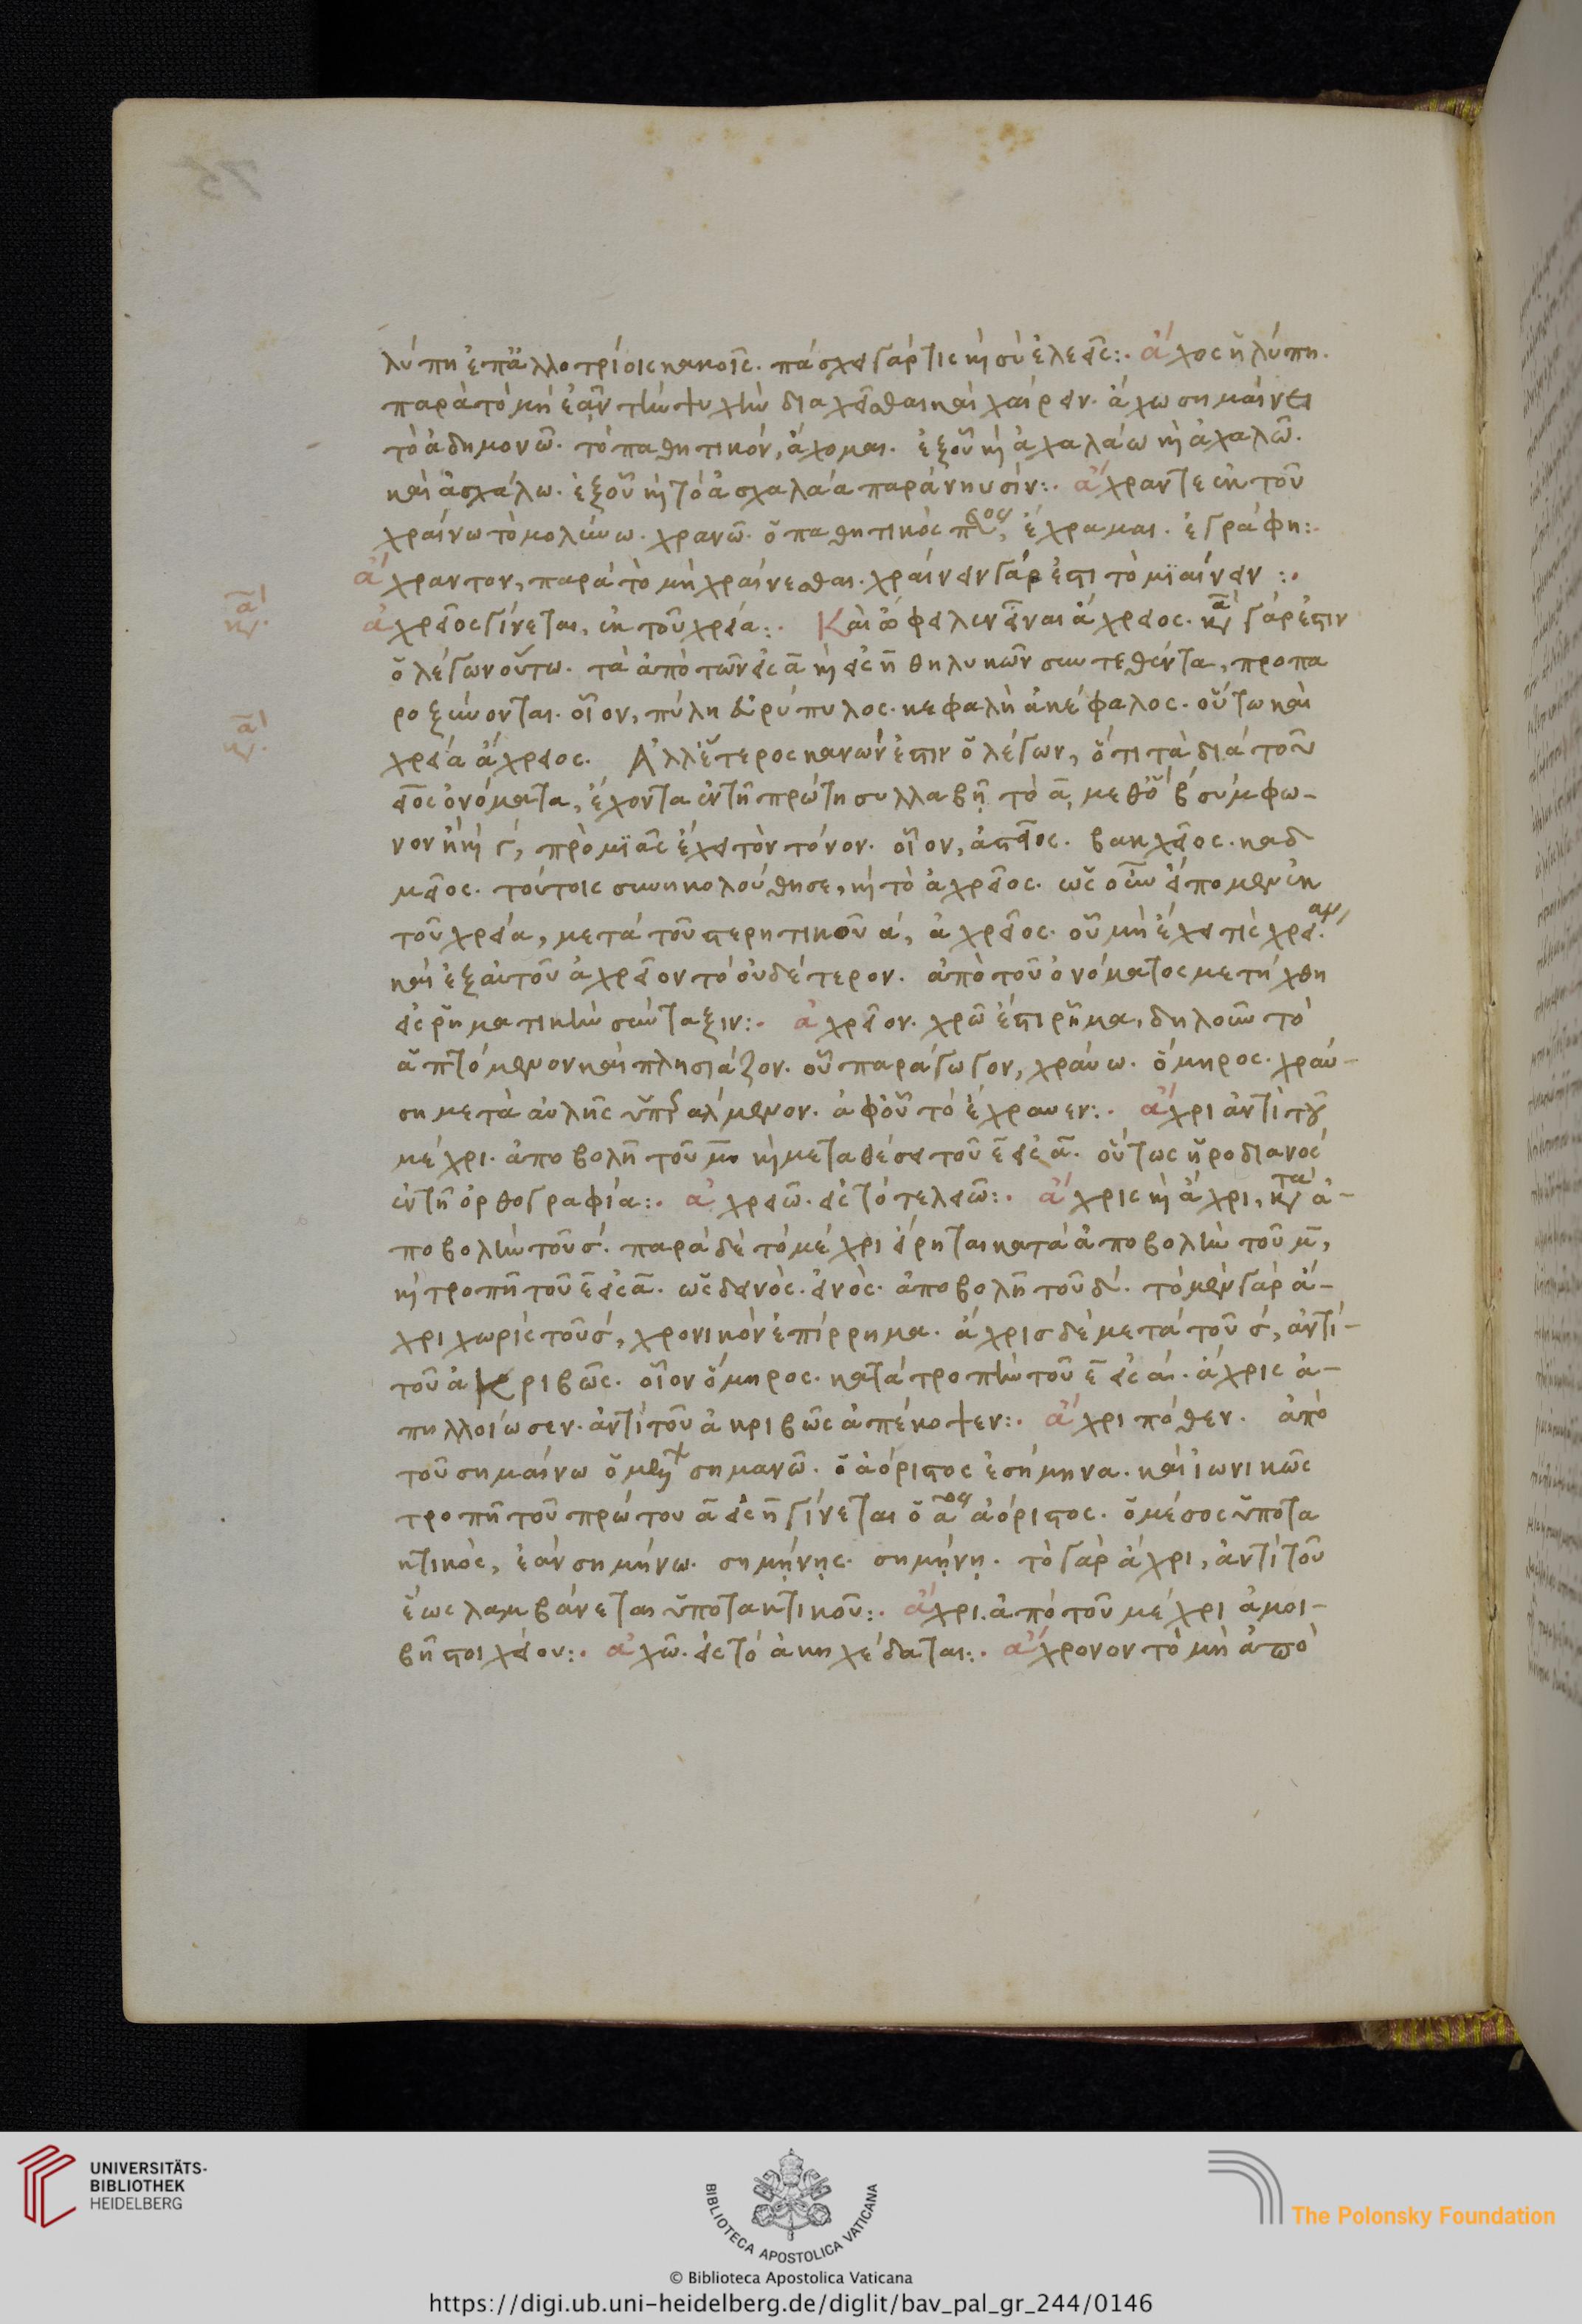 λύπη ἐπἀλλοτρίοις κακοῖς. πάσχει γάρ τις καὶ συ ἐλεεῖς:. ἄχος ἡ λύπη.
παρὰ τὸ μὴ ἐᾶν τὴν ψυχὴν διαχεῖσθαι καὶ χαίρειν. ἄχω σημαίνει
τὸ ἀδημονῶ. τὸ παθητικόν, ἄχομαι. ἐξ οὗ καὶ ἀχαλάω καὶ ἀχαλῶ.
καὶ ἀσχάλω. ἐξ οὗ καὶ τὸ ἀσχαλάα παρὰ νηυσίν:. ἄχραντε ἐκ τοῦ
χραίνω τὸ μολύνω. χρανῶ. ὁ παθητικὸς ἔχραμαι. ἐγράφη:.
ἄχραντον, παρὰ τὸ μὴ χραίνεσθαι. χραίνειν γάρ ἐστι τὸ μιαίνειν:.
ἀχρεῖος γίνεται, ἐκ τοῦ χρεία:. Καὶ ὤφειλεν εἶναι ἄχρειος. κα γάρ ἐστιν
ὁ λέγων οὕτω. τὰ ἀπὸ τῶν εἰς α καὶ εἰς η θηλυκῶν συντεθέντα, προπα
ροξύνονται. οἷον, πύλη εὐρύπυλος. κεφαλὴ ἀκέφαλος. οὕτω καὶ
χρεία ἄχρειος. Ἀλλ' ἕτερος κανών ἐστιν ὁ λέγων, ὅτι τὰ διὰ τοῦ
ειος ὀνόματα, ἔχοντα ἐν τῇ πρώτῃ συλλαβῇ τὸ α, μεθ' ὃ β σύμφω-
νον ἢ καὶ γ, πρὸ μιᾶς ἔχει τὸν τόνον. οἷον, ἀστεῖος. βακχεῖος. καδ
μεῖος. τούτοις συνηκολούθησε, καὶ τὸ ἀχρεῖος. ὡς οὖν εἴπομεν ἐκ
τοῦ χρεία, μετὰ τοῦ στερητικοῦ α, ἀχρεῖος. οὗ μὴ ἔχει τις χρείαν.
καὶ ἐξ αὐτοῦ ἀχρεῖον τὸ οὐδέτερον. ἀπὸ τοῦ ὀνόματος μετήχθη
εἰς ῥηματικὴν σύνταξιν:. ἀχρεῖον. χρῶ ἐστι ῥῆμα, δηλοῦν τὸ
ἁπτόμενον καὶ πλησιάζον. οὗ παράγωγον, χραύω. ὅμηρος. χραύ-
ση μετὰ αὐλῆς ὑπεραλμενον. ἀφ' οὗ τὸ ἔχραυεν:. ἄχρι ἀντὶ τοῦ
μέχρι. ἀποβολῇ τοῦ μ καὶ μεταθέσει τοῦ ε εἰς α. οὕτως ἡροδιανὸς
ἐν τῇ ὀρθογραφίᾳ:. ἀχρειῶ. εἰς τὸ τελειῶ:. ἄχρις καὶ ἄχρι, κατὰ ἀ-
ποβολὴν τοῦ σ. παρὰ δὲ τὸ μέχρι εἴρηται κατὰ ἀποβολὴν τοῦ μ,
καὶ τροπῇ τοῦ ε εἰς α. ὡς δεινὸς. εινὸς. ἀποβολῇ τοῦ δ. τὸ μὲν γὰρ ἄ-
χρι χωρὶς τοῦ σ, χρονικὸν ἐπίρρημα. ἄχρις δὲ μετὰ τοῦ σ, ἀντὶ-
τοῦ ἀκριβῶς. οἷον ὅμηρος. κατὰ τροπὴν τοῦ ε εἰς α. ἄχρις ἀ-
πηλλοίωσεν. ἀντὶ τοῦ ἀκριβῶς ἀπέκοψεν:. ἄχρι πόθεν. ἀπὸ
τοῦ σημαίνω ὁ μέλλων σημανῶ. ὁ ἀόριστος ἐσήμηνα. καὶ ἰωνικῶς
τροπῇ τοῦ πρώτου α εἰς η γίνεται ὁ αος ἀόριστος. ὁ μέσος ὑποτα
κτικὸς, ἐὰν σημήνω. σημήνῃς. σημήνῃ. τὸ γὰρ ἄχρι, ἀντὶ τοῦ
ἕως λαμβάνεται ὑποτακτικοῦ:. ἄχρι. ἀπὸ τοῦ μέχρι ἀμοι-
βῇ στοιχείου:. ἀχῶ. εἰς τὸ ἀκηχέδαται:. ἄχρονον τὸ μὴ ἀπὸ
UNIVERSITÄTS-
BIBLIOTHEK
HEIDELBERG
BIBLIOTECA APOSTOLICA VATICANA
The Polonsky Foundation
© Biblioteca Apostolica Vaticana
https://digi.ub.uni-heidelberg.de/diglit/bav_pal_gr_244/0146